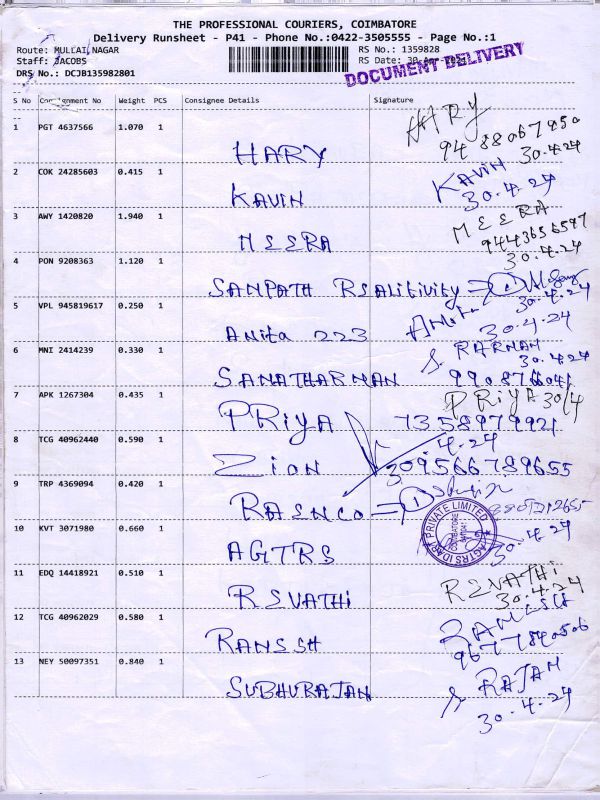 THE PROFESSIONAL COURIERS, COIMBATORE
Delivery Runsheet - P41 - Phone No.:0422-3505555 - Page No.:1
Route: MULLAI NAGAR
RS No.: 1359828
Staff: JACOBS
RS Date: 30-Apr-2024
DRS No.: DCJB135982801
DOCUMENT DELIVERY
S No Consignment No Weight PCS Consignee Details Signature
1 PGT 4637566 1.070 1 HARY HARY
9488067950
30.4.24
2 COK 24285603 0.415 1 KAVIN KAVIN
30.4.24
3 AWY 1420820 1.940 1 MEERA MEERA
9443656597
30.4.24
4 PON 9208363 1.120 1 SAMPATH REALitivity = 1
30.4.24
5 VPL 945819617 0.250 1 Anita 223 Anita
30.4.24
6 MNI 2414239 0.330 1 SANATHARMAN S. RARMAN
30.4.24
7 APK 1267304 0.435 1 PRiyA PRiyA 30/4
7358979921
4.24
8 TCG 40962440 0.590 1 Zion 309566789655
9 TRP 4369094 0.420 1 RAENCO = 1
10 KVT 3071980 0.660 1 AGTRS
AGTRS IDART PRIVATE LIMITED
COIMBATORE
30.4.24
11 EDQ 14418921 0.510 1 REVATHi REVATHi
30.4.24
12 TCG 40962029 0.580 1 RAMESH RAMESH
13 NEY 50097351 0.840 1 SUBHURAJAN S. RAJAN
30.4.24